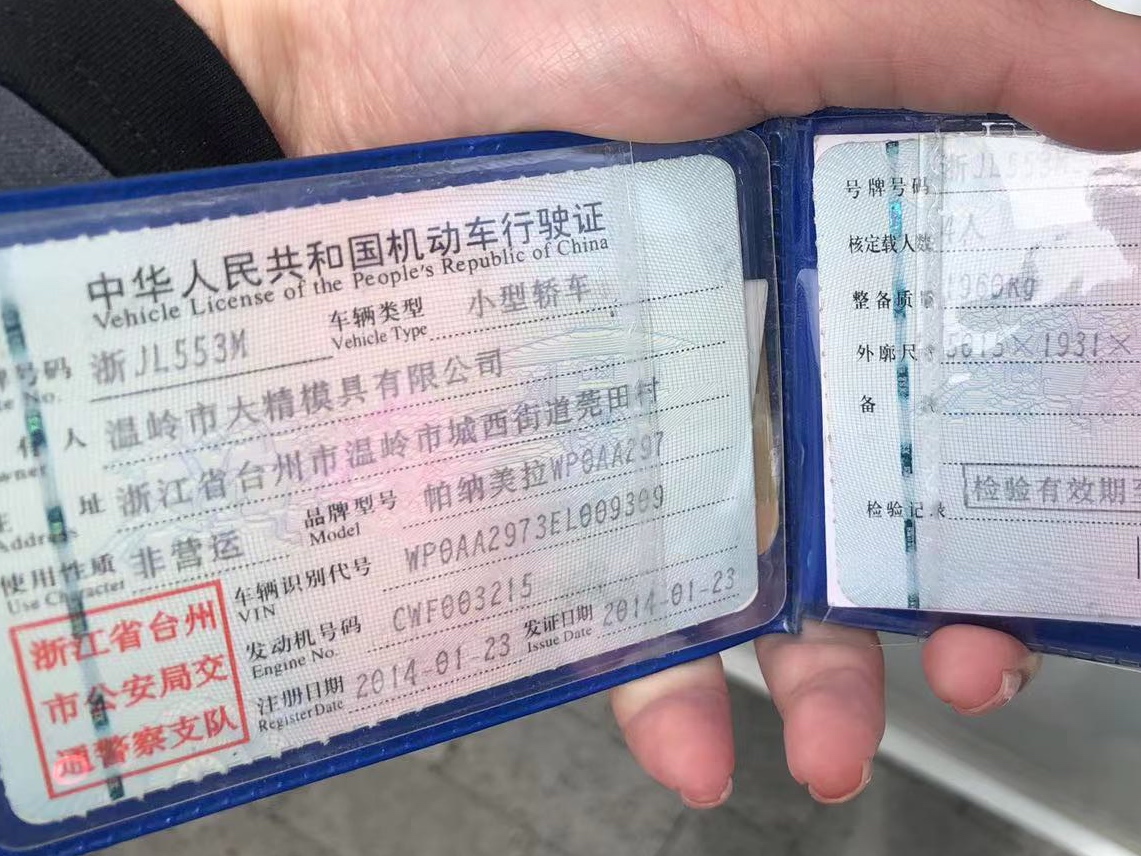 中华人民共和国机动车行驶证
Vehicle License of the People's Republic of China
号码 浙JL553M 车辆类型 小型轿车
No. Vehicle Type
人 温岭市大精模具有限公司
址 浙江省台州市温岭市城西街道莞田村
Address
品牌型号 帕纳美拉WP0AA297
Model
使用性质 非营运
Use Character
车辆识别代号 WP0AA2973EL009309
VIN
发动机号码 CWF003215
Engine No.
注册日期 2014-01-23 发证日期 2014-01-23
Register Date Issue Date
浙江省台州
市公安局交
通警察支队
号牌号码 浙JL553M
核定载人数 4人
整备质 1969Kg
外廓尺 5015×1931×
备
检验记录 检验有效期